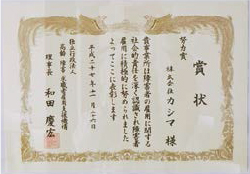 努力賞
賞状
株式会社
カシマ 様
貴事業所は障害者の雇用に関する
社会的責任を深く認識され障害者
雇用に積極的に努められました
よってここに表彰します
平成二十七年十一月二十六日
独立行政法人
高齢・障害・求職者雇用支援機構
理事長
和田慶宏